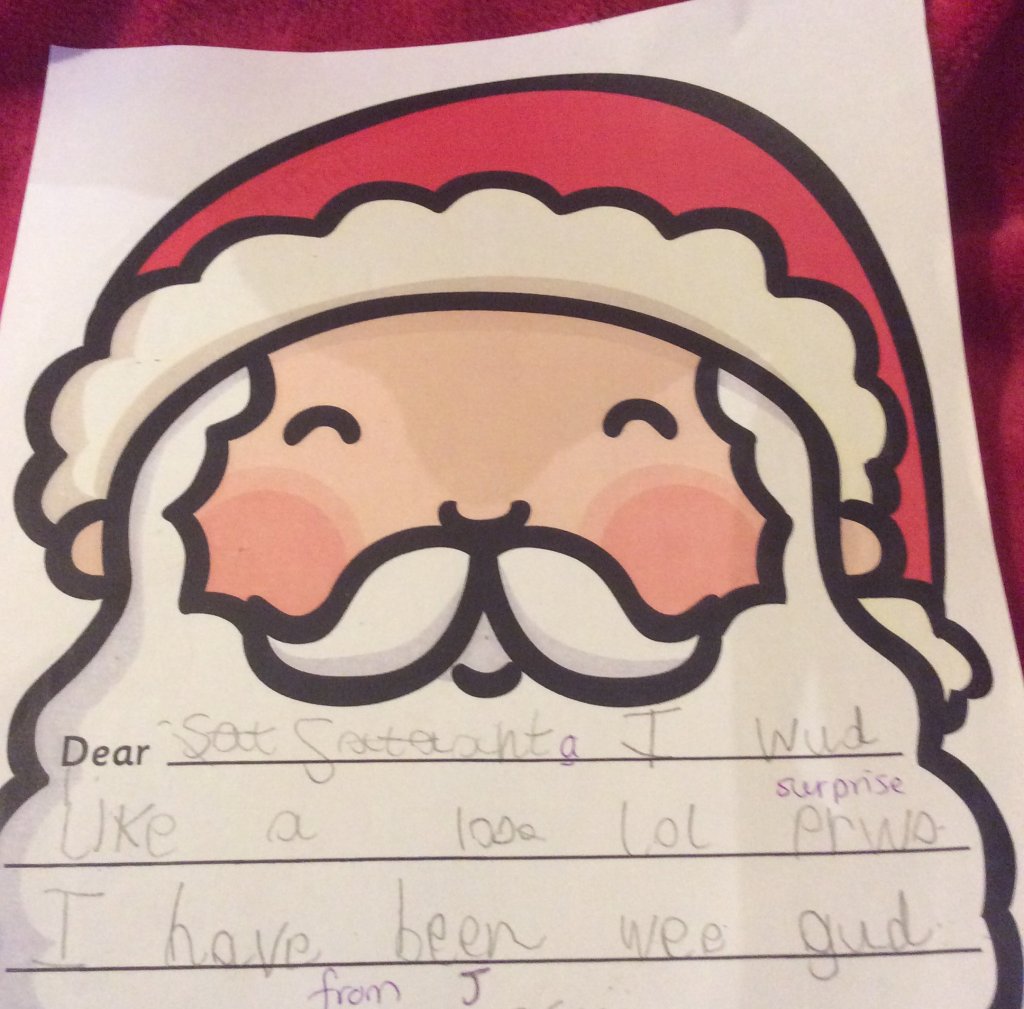 Dear Sat Satasanta I wud
surprise
like a losa lol prws
I have been wee gud
from J